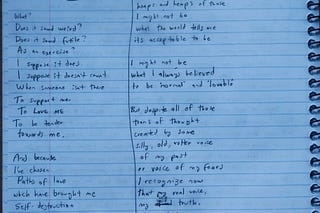 What?
Does it sound weird?
Does it sound futile?
As an exercise?
I suppose it does.
I suppose it doesn't count
When someone isn't there
To support me.
To love me
To be tender
towards me.
And because
I've chosen
Paths of love
which have brought me
Self-destruction
heaps and heaps of those
I might not be
what the world tells me
its acceptable to be
I might not be
what I always believed
to be "normal" and "lovable"
But despite all of those
tons of thought
created by some
silly, old, voice
of my past
or voice of my fears
I recognize now
that my real voice,
my truth.